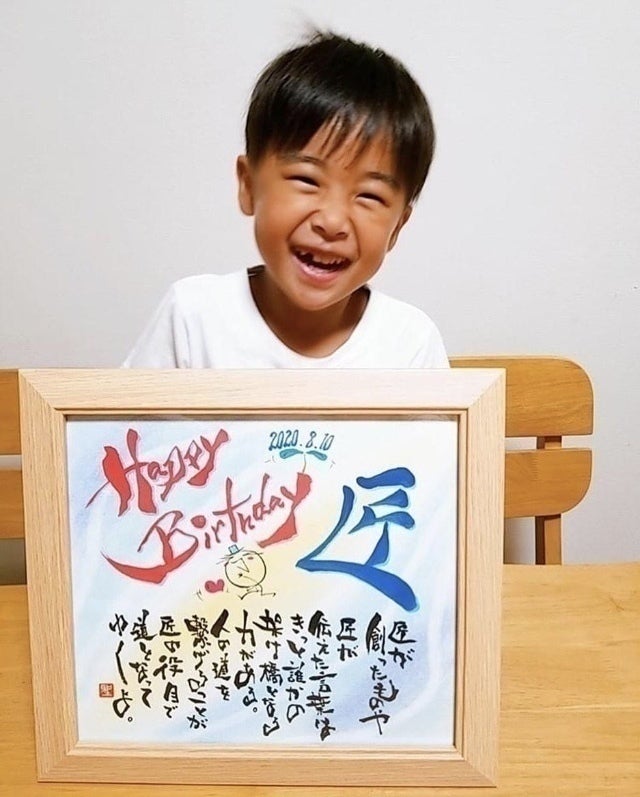 Happy
Birthday
2020.8.10
匠
匠が
創ったものや
匠が
伝えた言葉は
きっと誰かの
架け橋となる
力がある。
人の道を
繋がることが
匠の役目で
道となって
ゆくよ。
聖